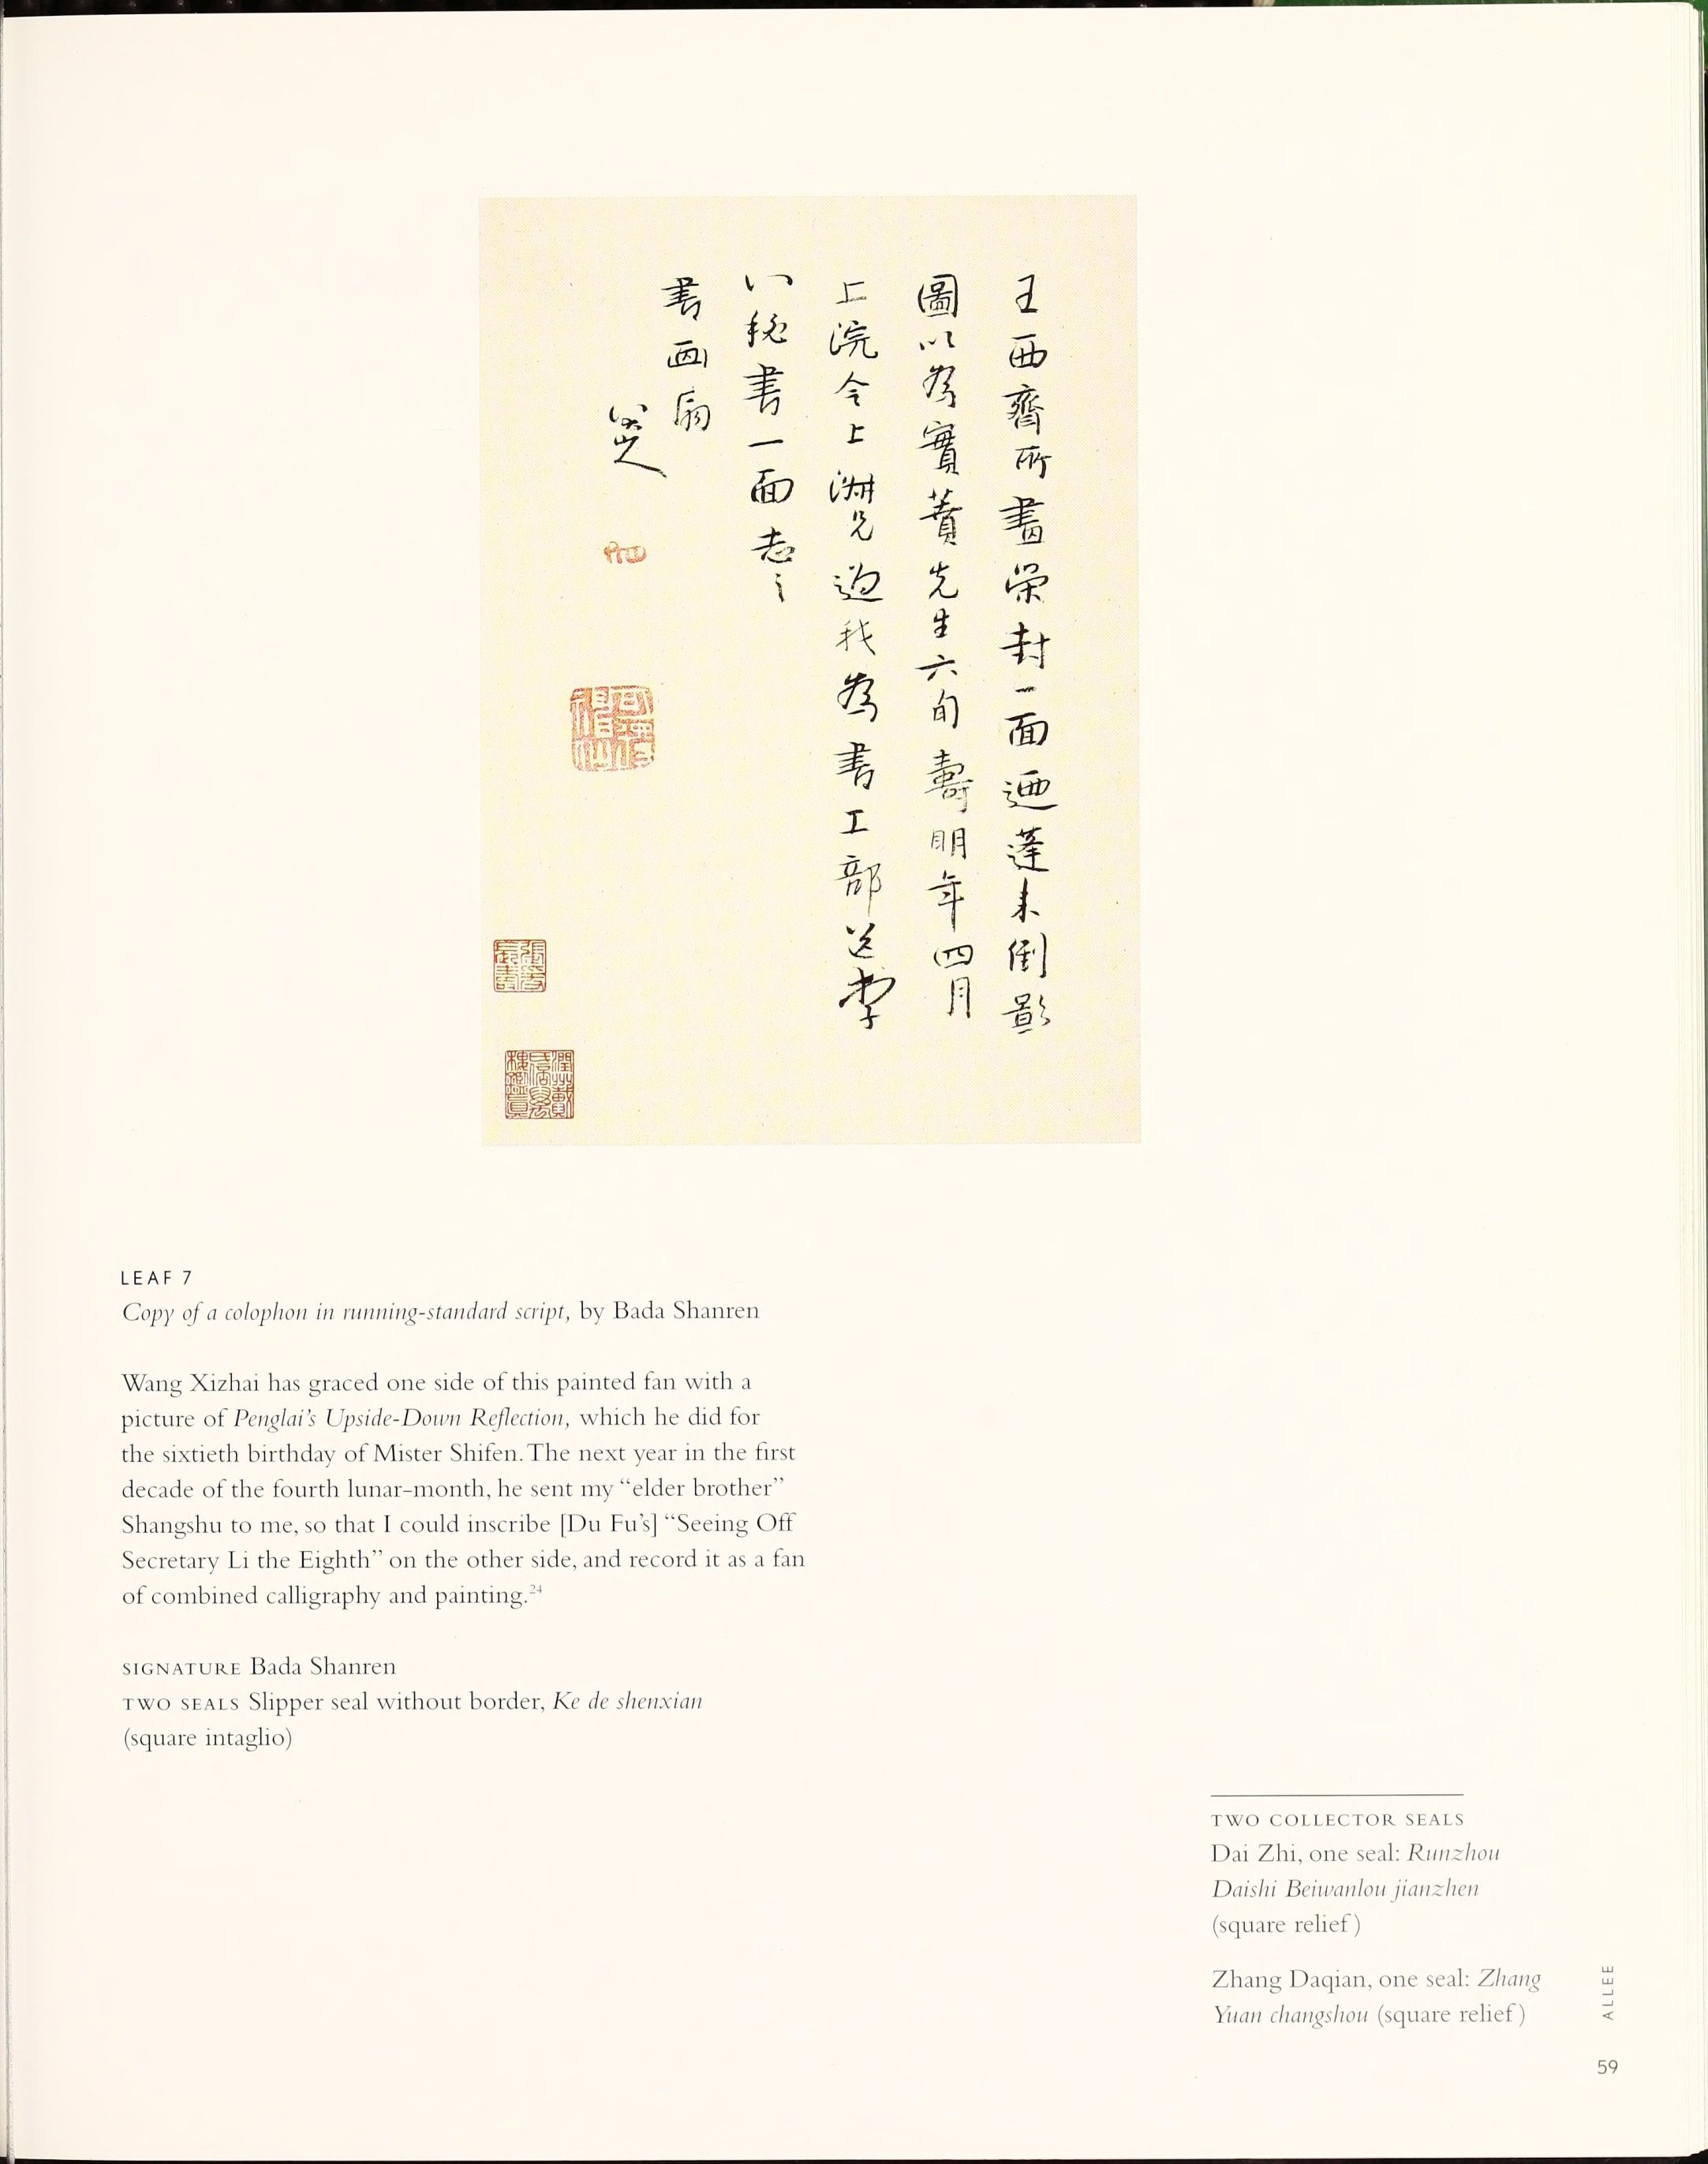 王西齋所畫榮封一面迺蓬萊倒影
圖以為實蕡先生六旬壽明年四月
上浣令上淵兄迫我為書工部送李
八秘書一面志之
書画扇
八大山人
可得神仙
張爰長壽
潤州戴氏倍萬樓鑑真
LEAF 7
Copy of a colophon in running-standard script, by Bada Shanren
Wang Xizhai has graced one side of this painted fan with a
picture of Penglai's Upside-Down Reflection, which he did for
the sixtieth birthday of Mister Shifen. The next year in the first
decade of the fourth lunar-month, he sent my “elder brother”
Shangshu to me, so that I could inscribe [Du Fu's] “Seeing Off
Secretary Li the Eighth” on the other side, and record it as a fan
of combined calligraphy and painting.24
SIGNATURE Bada Shanren
TWO SEALS Slipper seal without border, Ke de shenxian
(square intaglio)
TWO COLLECTOR SEALS
Dai Zhi, one seal: Runzhou
Daishi Beiwanlou jianzhen
(square relief)
Zhang Daqian, one seal: Zhang
Yuan changshou (square relief)
ALLEE
59